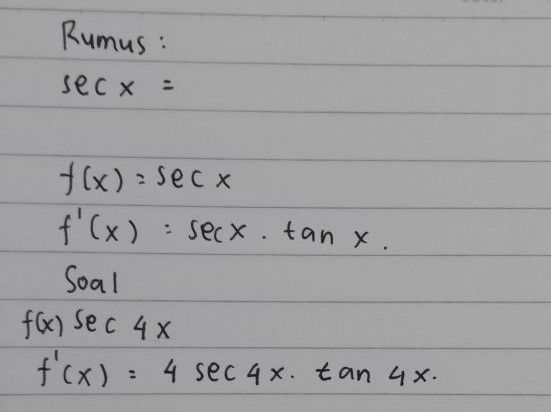 Rumus :
sec x =
f(x) = sec x
f'(x) = sec x . tan x .
Soal
f(x) sec 4x
f'(x) = 4 sec 4x. tan 4x.